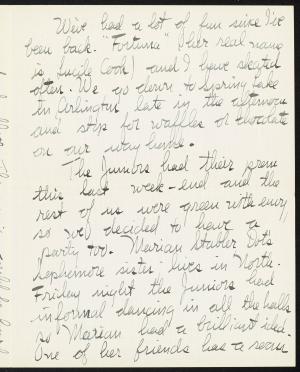 We've had a lot of fun since I've
been back. "Fortuna" (her real name
is Lucile Cook) and I have skated
often. We go down to Spring Lake
in Arlington late in the afternoon
and stop for waffles or chocolate
on our way home.
The Juniors had their prom
this last week-end and the
rest of us were green with envy,
so we decided to have a
party too. Marian Dot's
sophomore sister lives in North.
Friday night the Juniors had
informal dancing in all the halls
so Marian had a brilliant idea.
One of her friends has a room